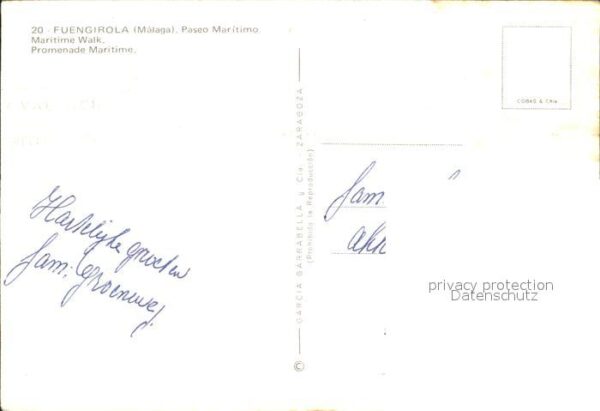 20 - FUENGIROLA (Málaga). Paseo Marítimo.
Maritime Walk.
Promenade Maritime.
Hartelijke groeten
fam. Groeneweg.
© GARCIA GARRABELLA y Cía. - ZARAGOZA
(Prohibida la Reproducción)
COBAS & CRIA
fam
privacy protection
Datenschutz